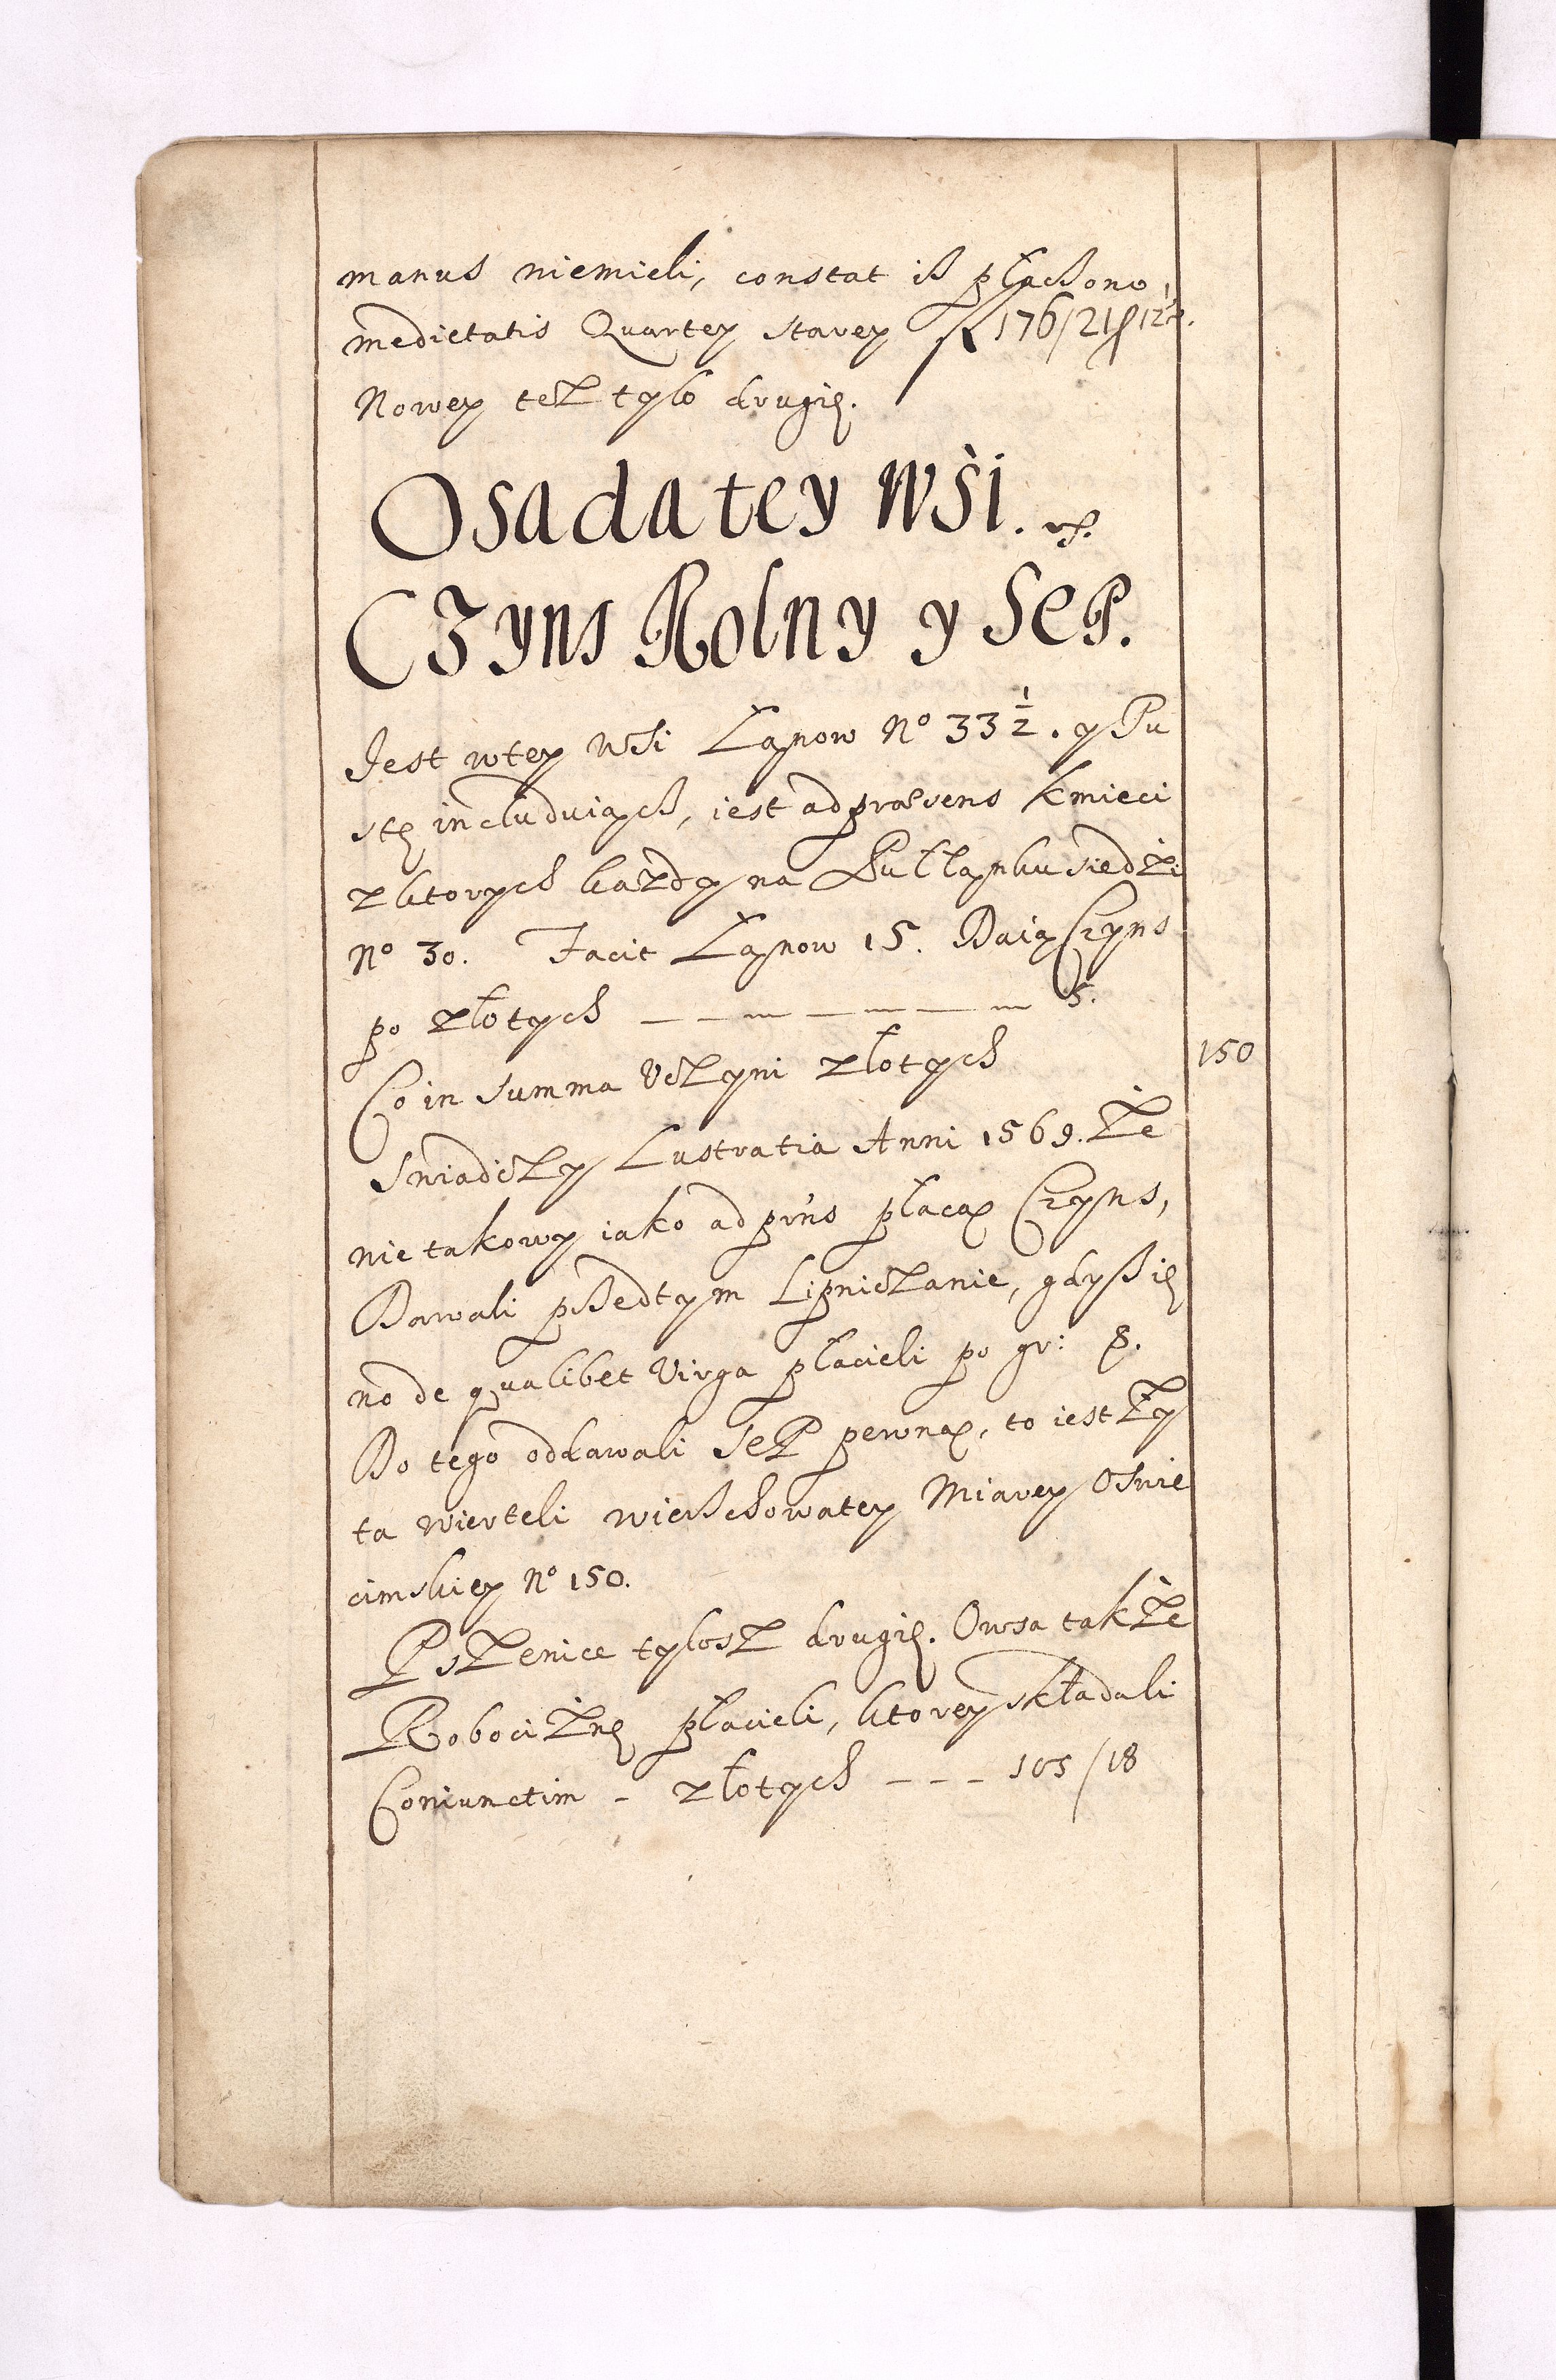 manus niemieli, constat iß płachono,
medietatis Quartey starey fl 176/21/12½.
Nowey też tylo drugie.
Osada tey wśi.
Czyns Rolny y Sep.
Jest wtey wsi Łanow No 33½. y Pu
ste includuiąch, iest ad præsens kmieci
z ktorych każdy na Pułłanku siedzi
No 30. Facit Łanow 15. Daią Czyns
po złotych _ _ _ _ _ _ _ 5.
Co in summa vczyni złotych 150
Swiadczy Lustratia Anni 1569. że
nie takowy iako ad prńs płacą Czyns,
Dawali przedtym Lipniczanie, gdyß ie
no de qualibet virga płacieli po gr: 8.
Do tego oddawali Sep pewną, to iest ży
ta wierteli wierzchowatey Miarey Oswie
cimskiey No 150.
Pszenice tylosz drugie. Owsa także
Robociznę płacieli, ktorey składali
Coniunctim - złotych - - - 105/18